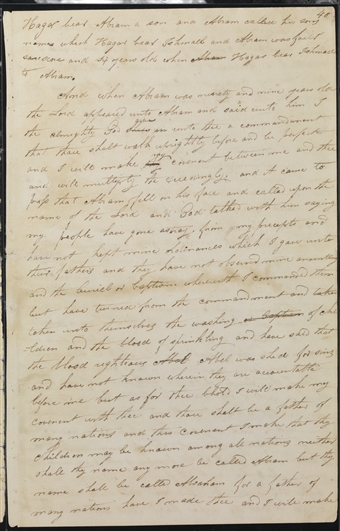 40
Hagar bear Abram a son and Abram called his sons
name which Hagar bear Ishmael and Abram was four
score and six years old when Hagar bear Ishmael
to Abram
And when Abram was ninety and nine years old
the Lord appeared unto Abram and said unto him I
the almighty God give unto thee a commandment
that thou shalt walk uprightly before me and be perfect
and I will make my covenent between me and thee
and will multiply thee exceedingly and it came to
pass that Abram fell on his face and called upon the
name of the Lord and God talked with him saying
my people have gone astray from my precepts and
have not kept mine ordinances which I gave unto
their fathers and they have not observed mine anointing
and the buriel or baptism wherewith I commanded them
but have turned from the commandment and taken
unto themselves the washing of chi
ldren and the blood of sprinkling and have said that
the blood of the righteous Abel was shed for sins
and have not known wherein they are accountable
before me but as for thee behold I will make my
covenent with thee and thou shalt be a father of
many nations and this covenent I make that thy
children may be known among all nations neither
shall thy name any more be called Abram but thy
name shall be called Abraham for a father of
many nations have I made thee and I will make